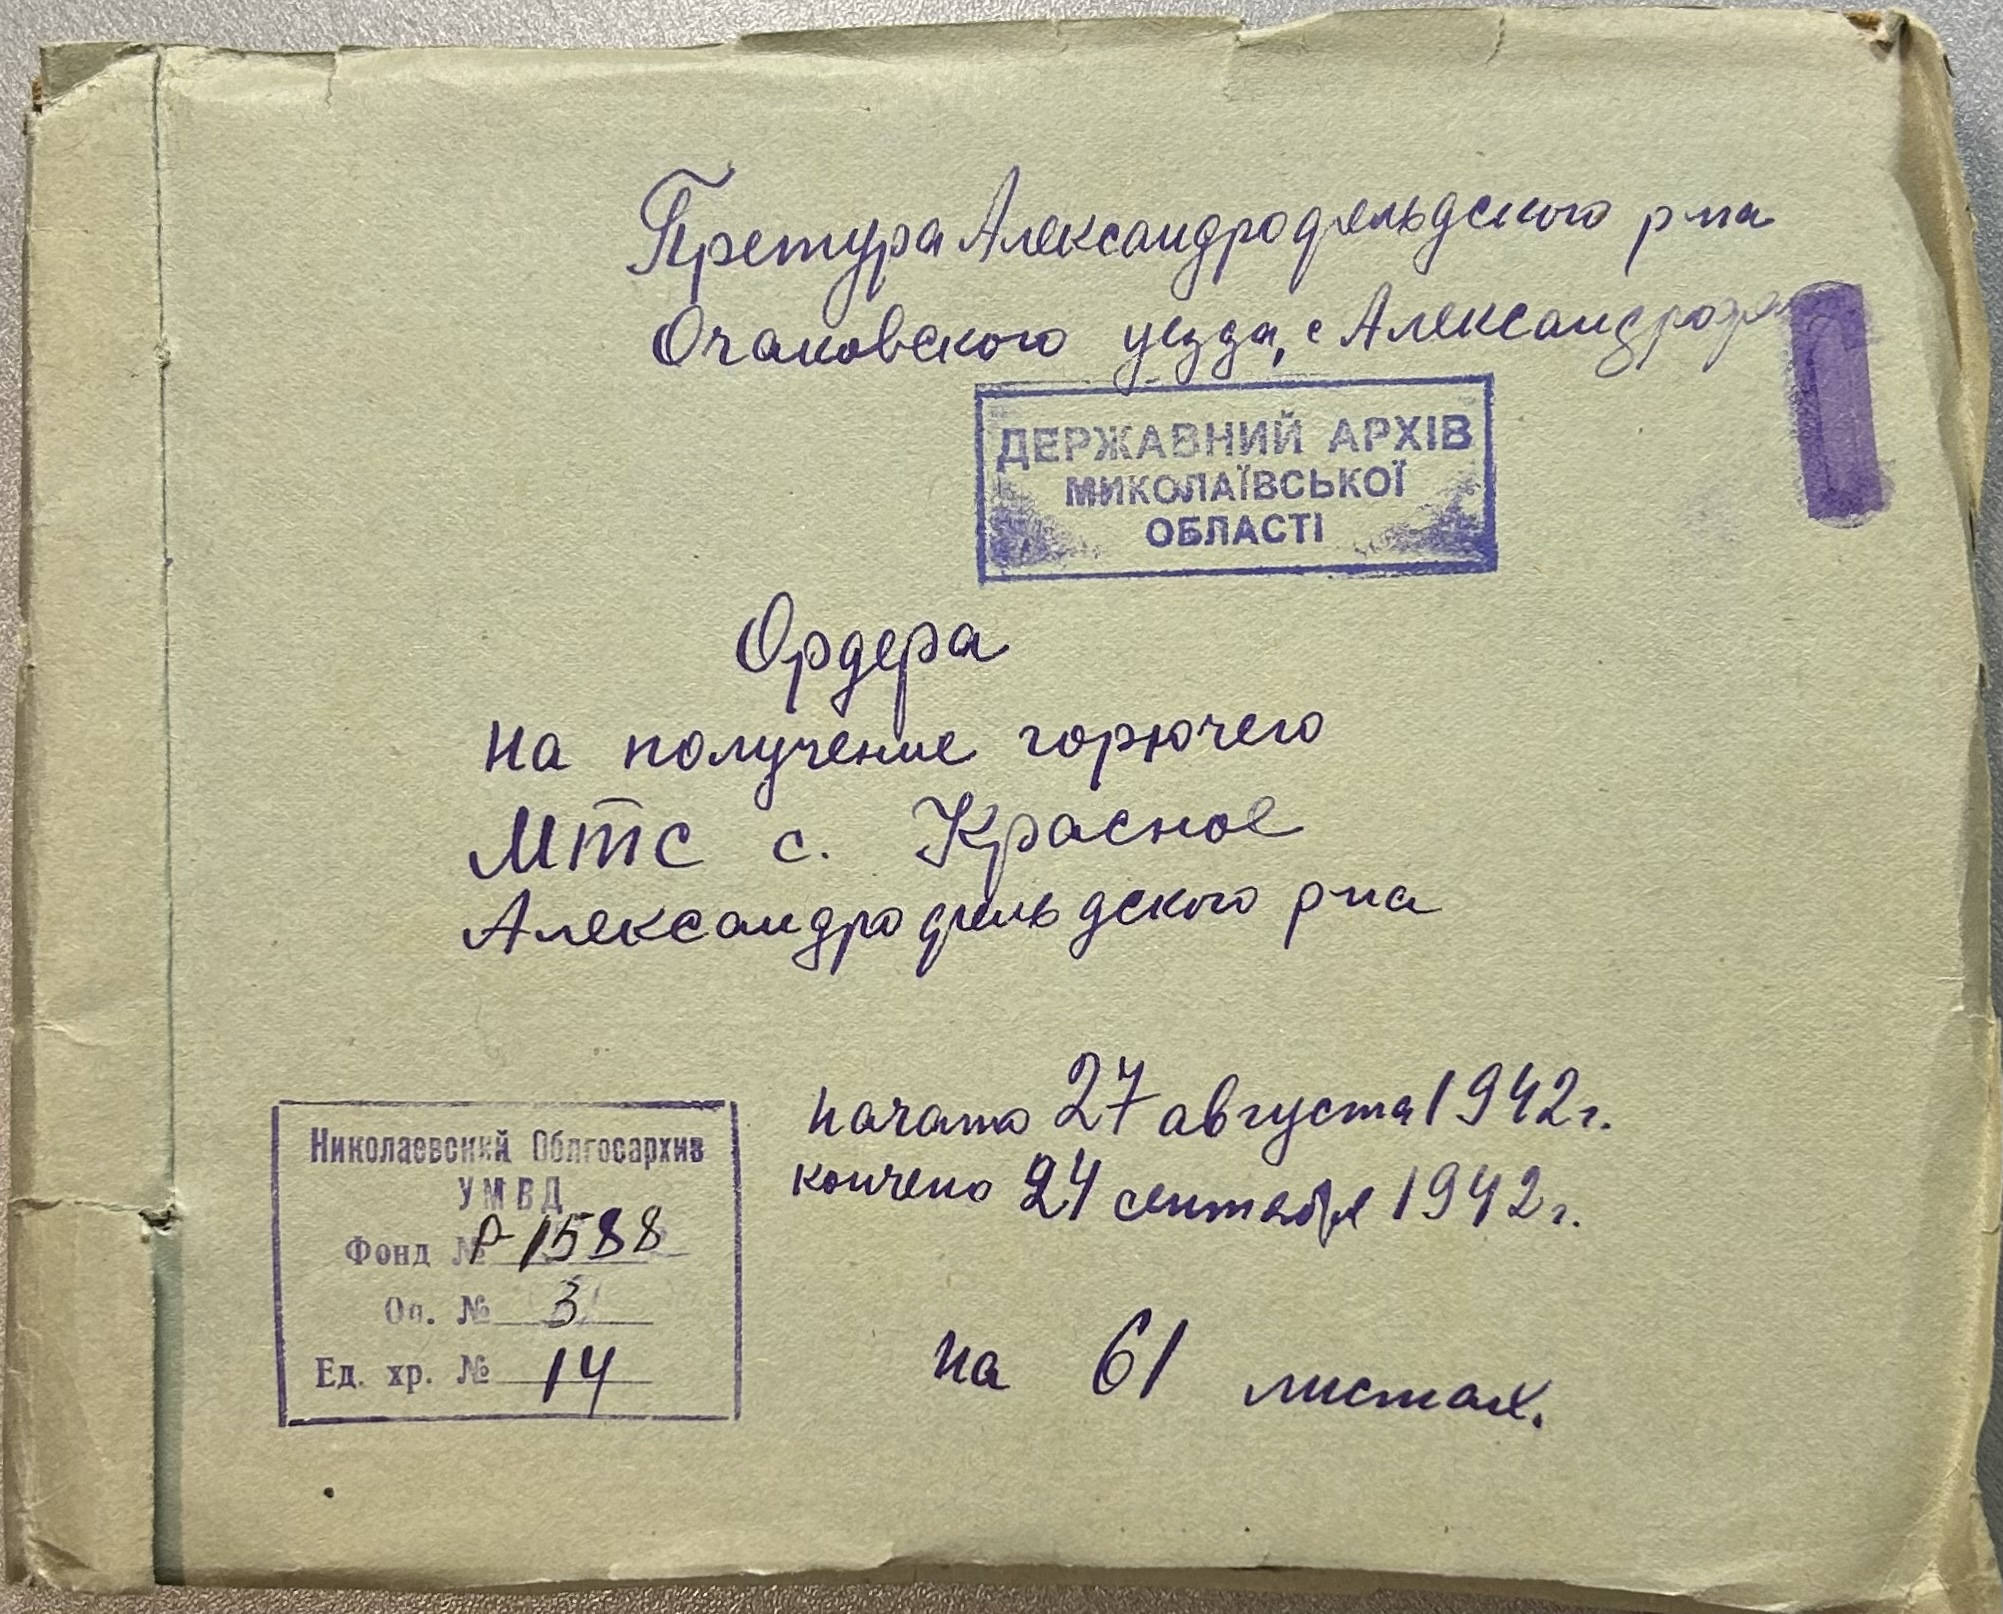 Претура Александрофельдского р-на
Очаковского уезда, с Александрофе
ДЕРЖАВНИЙ АРХІВ
МИКОЛАЇВСЬКОЇ
ОБЛАСТІ
Ордера
на получение горючего
МТС с. Красное
Александрофельдского р-на
начато 27 августа 1942 г.
кончено 24 сентября 1942 г.
Николаевский Облгосархив
УМВД
Фонд № Р-1588
Оп. № 3
Ед. хр. № 14
на 61 листах.